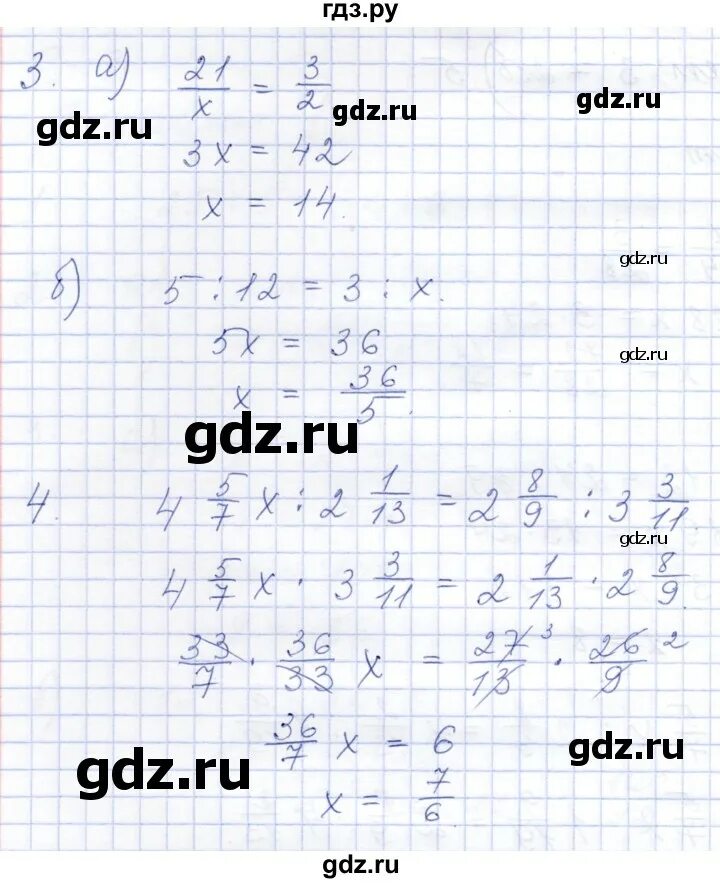 гдз.ру
3. а) 21/x = 3/2
gdz.ru gdz.ru gdz.ru
3x = 42
x = 14.
gdz.ru
б) 5 : 12 = 3 : x.
5x = 36
gdz.ru
x = 36/5.
gdz.ru
4. 4 5/7 x : 2 1/13 = 2 8/9 : 3 3/11.
gdz.ru
4 5/7 x · 3 3/11 = 2 1/13 · 2 8/9.
33/7 · 36/33 x = 27/13 3 · 26/9 2
36/7 x = 6
gdz.ru gdz.ru
x = 7/6.
gdz.ru